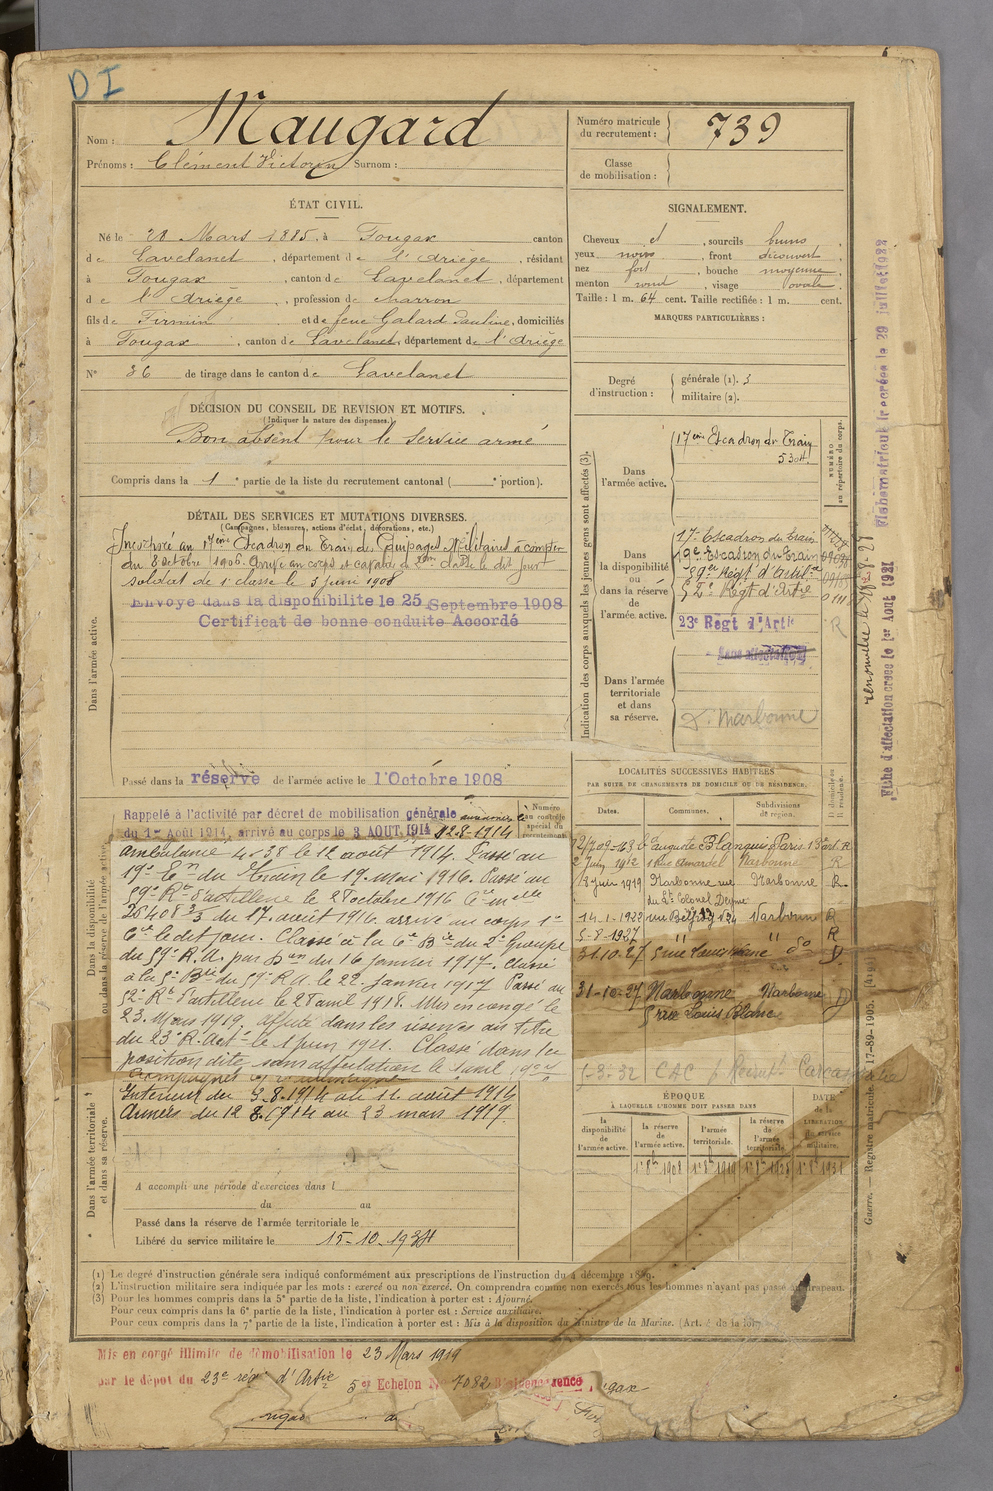 DI
Nom : Maugard
Prénoms : Clément Victorin Surnom :
Numéro matricule du recrutement : 739
Classe de mobilisation :
ÉTAT CIVIL.
Né le 28 Mars 1885, à Fougax canton
de Lavelanet, département de l'Ariège, résidant
à Fougax, canton de Lavelanet, département
de l'Ariège, profession de charron
fils de Firmin et de feue Galard Pauline, domiciliés
à Fougax, canton de Lavelanet, département de l'Ariège
N° 36 de tirage dans le canton de Lavelanet
SIGNALEMENT.
Cheveux et, sourcils bruns,
yeux noirs, front découvert,
nez fort, bouche moyenne,
menton rond, visage ovale.
Taille : 1 m. 64 cent. Taille rectifiée : 1 m. cent.
MARQUES PARTICULIÈRES :
Degré d'instruction :
générale (1). 3
militaire (2).
DÉCISION DU CONSEIL DE REVISION ET MOTIFS.
(Indiquer la nature des dispenses.)
Bon absent pour le service armé
Compris dans la 1e partie de la liste du recrutement cantonal ( e portion).
DÉTAIL DES SERVICES ET MUTATIONS DIVERSES.
(Campagnes, blessures, actions d'éclat, décorations, etc.)
Dans l'armée active.
Incorporé au 17ème Escadron du Train des Equipages Militaires à compter
du 8 octobre 1906. Arrivé au corps et cavalier de 2ème classe le dit jour
soldat de 1e classe le 3 juin 1908
Envoyé dans la disponibilité le 25 Septembre 1908
Certificat de bonne conduite Accordé
Passé dans la réserve de l'armée active le 1 Octobre 1908
Indication des corps auxquels les jeunes gens sont affectés (3).
NUMÉRO au répertoire du corps.
Dans l'armée active.
17ème Escadron du Train
5304
Dans la disponibilité ou dans la réserve de l'armée active.
17e Escadron du Train
19e Escadron du Train
59e Régt d'Artie
52e Régt d'Artie
23e Régt d'Artie
R
Sans affectation
Dans l'armée territoriale et dans sa réserve.
Narbonne
Dans la disponibilité ou dans la réserve de l'armée active.
Numéro au contrôle spécial du recrutement.
Rappelé à l'activité par décret de mobilisation générale
du 1er Août 1914, arrivé au corps le 3 AOUT 1914 2-8-1914
ambulance 4-38 le 12 août 1914. Passé au
19e En du Train le 19 Mai 1916. Passé au
59e Rt d'artillerie le 28 octobre 1916
du 17 août 1916 arrivé au corps
le dit jour. Classé à la 6e Bie du 2e Groupe
du 59e R.A. par du 16 janvier 1917. Classé
à la 5e Bie du 59e R.A. le 22 Janvier 1917 Passé au
52e Rt d'artillerie le 28 avril 1918. Mis en congé le
23 Mars 1919, affecté dans les réserves au titre
du 23e R. Art le 1 juin 1921. Classé dans la
position dite sans affectation le 1 avril
Campagnes
Intérieur du 3.8.1914 au 11 août 1914
Armées du 12 8.1914 au 23 mars 1919.
LOCALITÉS SUCCESSIVES HABITÉES
PAR SUITE DE CHANGEMENTS DE DOMICILE OU DE RÉSIDENCE.
Dates. Communes. Subdivisions de région. D domicile ou R résidence.
Auguste Blanqui Paris 13e arrt R
2 Juin 1912 Narbonne R
18 Juin 1919 Narbonne rue du Lt Colonel Deyme Narbonne R
14-1-1922 rue Belfort N°24 Narbonne R
5-8-1927 " " R
31.10.27 5 rue Louis Blanc do D
31-10-27 Narbonne 5 rue Louis Blanc Narbonne D
1-3-32 CAC
ÉPOQUE
À LAQUELLE L'HOMME DOIT PASSER DANS
DATE de la LIBÉRATION du service militaire.
la disponibilité de l'armée active.
la réserve de l'armée active.
l'armée territoriale.
la réserve de l'armée territoriale.
1er 8bre 1908
1er 8bre 1919
Dans l'armée territoriale et dans sa réserve.
A accompli une période d'exercices dans l
du au
Passé dans la réserve de l'armée territoriale le
Libéré du service militaire le 15-10-1934
(1) Le degré d'instruction générale sera indiqué conformément aux prescriptions de l'instruction du 4 décembre 1889.
(2) L'instruction militaire sera indiquée par les mots : exercé ou non exercé. On comprendra comme non exercés tous les hommes n'ayant pas passé au drapeau.
(3) Pour les hommes compris dans la 5e partie de la liste, l'indication à porter est : Ajourné.
Pour ceux compris dans la 6e partie de la liste, l'indication à porter est : Service auxiliaire.
Pour ceux compris dans la 7e partie de la liste, l'indication à porter est : Mis à la disposition du Ministre de la Marine. (Art. 4 de la loi)
Mis en congé illimité de démobilisation le 23 Mars 1919
par le dépôt du 23e rég d'Artie 5e Echelon No 7082
Fiche matricule recréée le 29 juillet 1932
Fiche d'affectation créée le 1er Août 1921
renouvelée le
Guerre. — Registre matricule. — 17-89-1905.